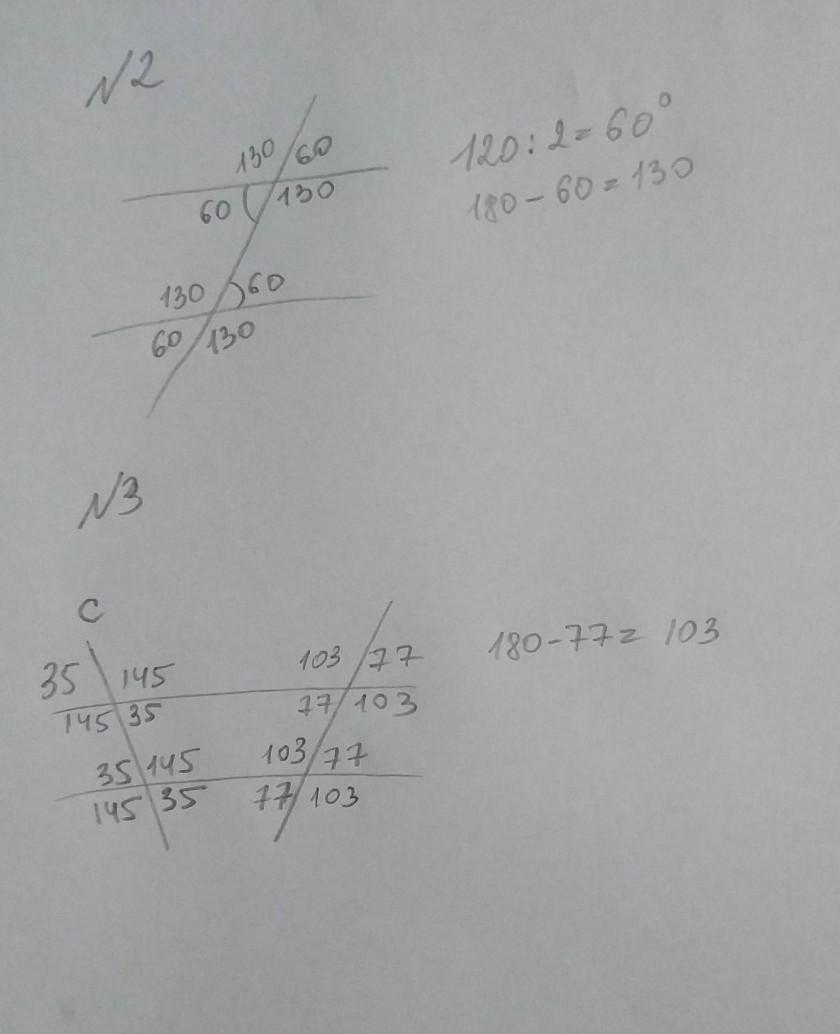 N2
130 60
60 130
120:2=60°
180-60=130
130 60
60 130
N3
C
35 145 103 77
145 35 77 103
180-77=103
35 145 103 77
145 35 77 103